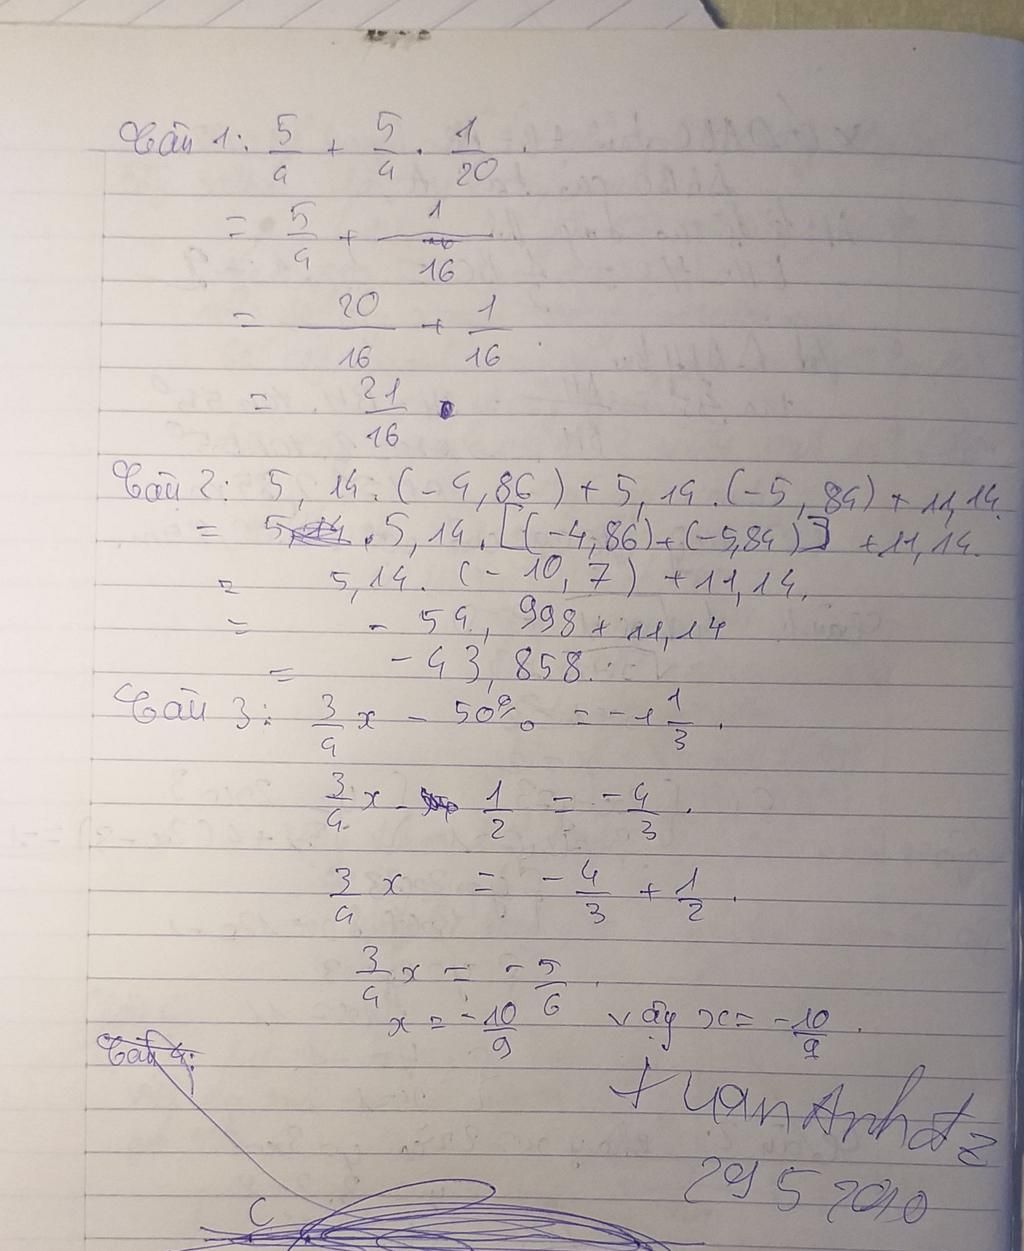 Câu 1: 5/4 + 5/4 . 1/20 .
= 5/4 + 1/16
= 20/16 + 1/16
= 21/16 .
Câu 2: 5,14.(-4,86)+5,14.(-5,84)+11,14.
= 5,14.[(-4,86)+(-5,84)] +11,14.
= 5,14. (-10,7) +11,14.
= -54,998+11,14
= -43,858.
Câu 3: 3/4 x - 50% = -1 1/3 .
3/4 x - 1/2 = -4/3 .
3/4 x = -4/3 + 1/2 .
3/4 x = -5/6 .
x = -10/9 vậy x = -10/9 .
Câu 4:
29 5 2010
C